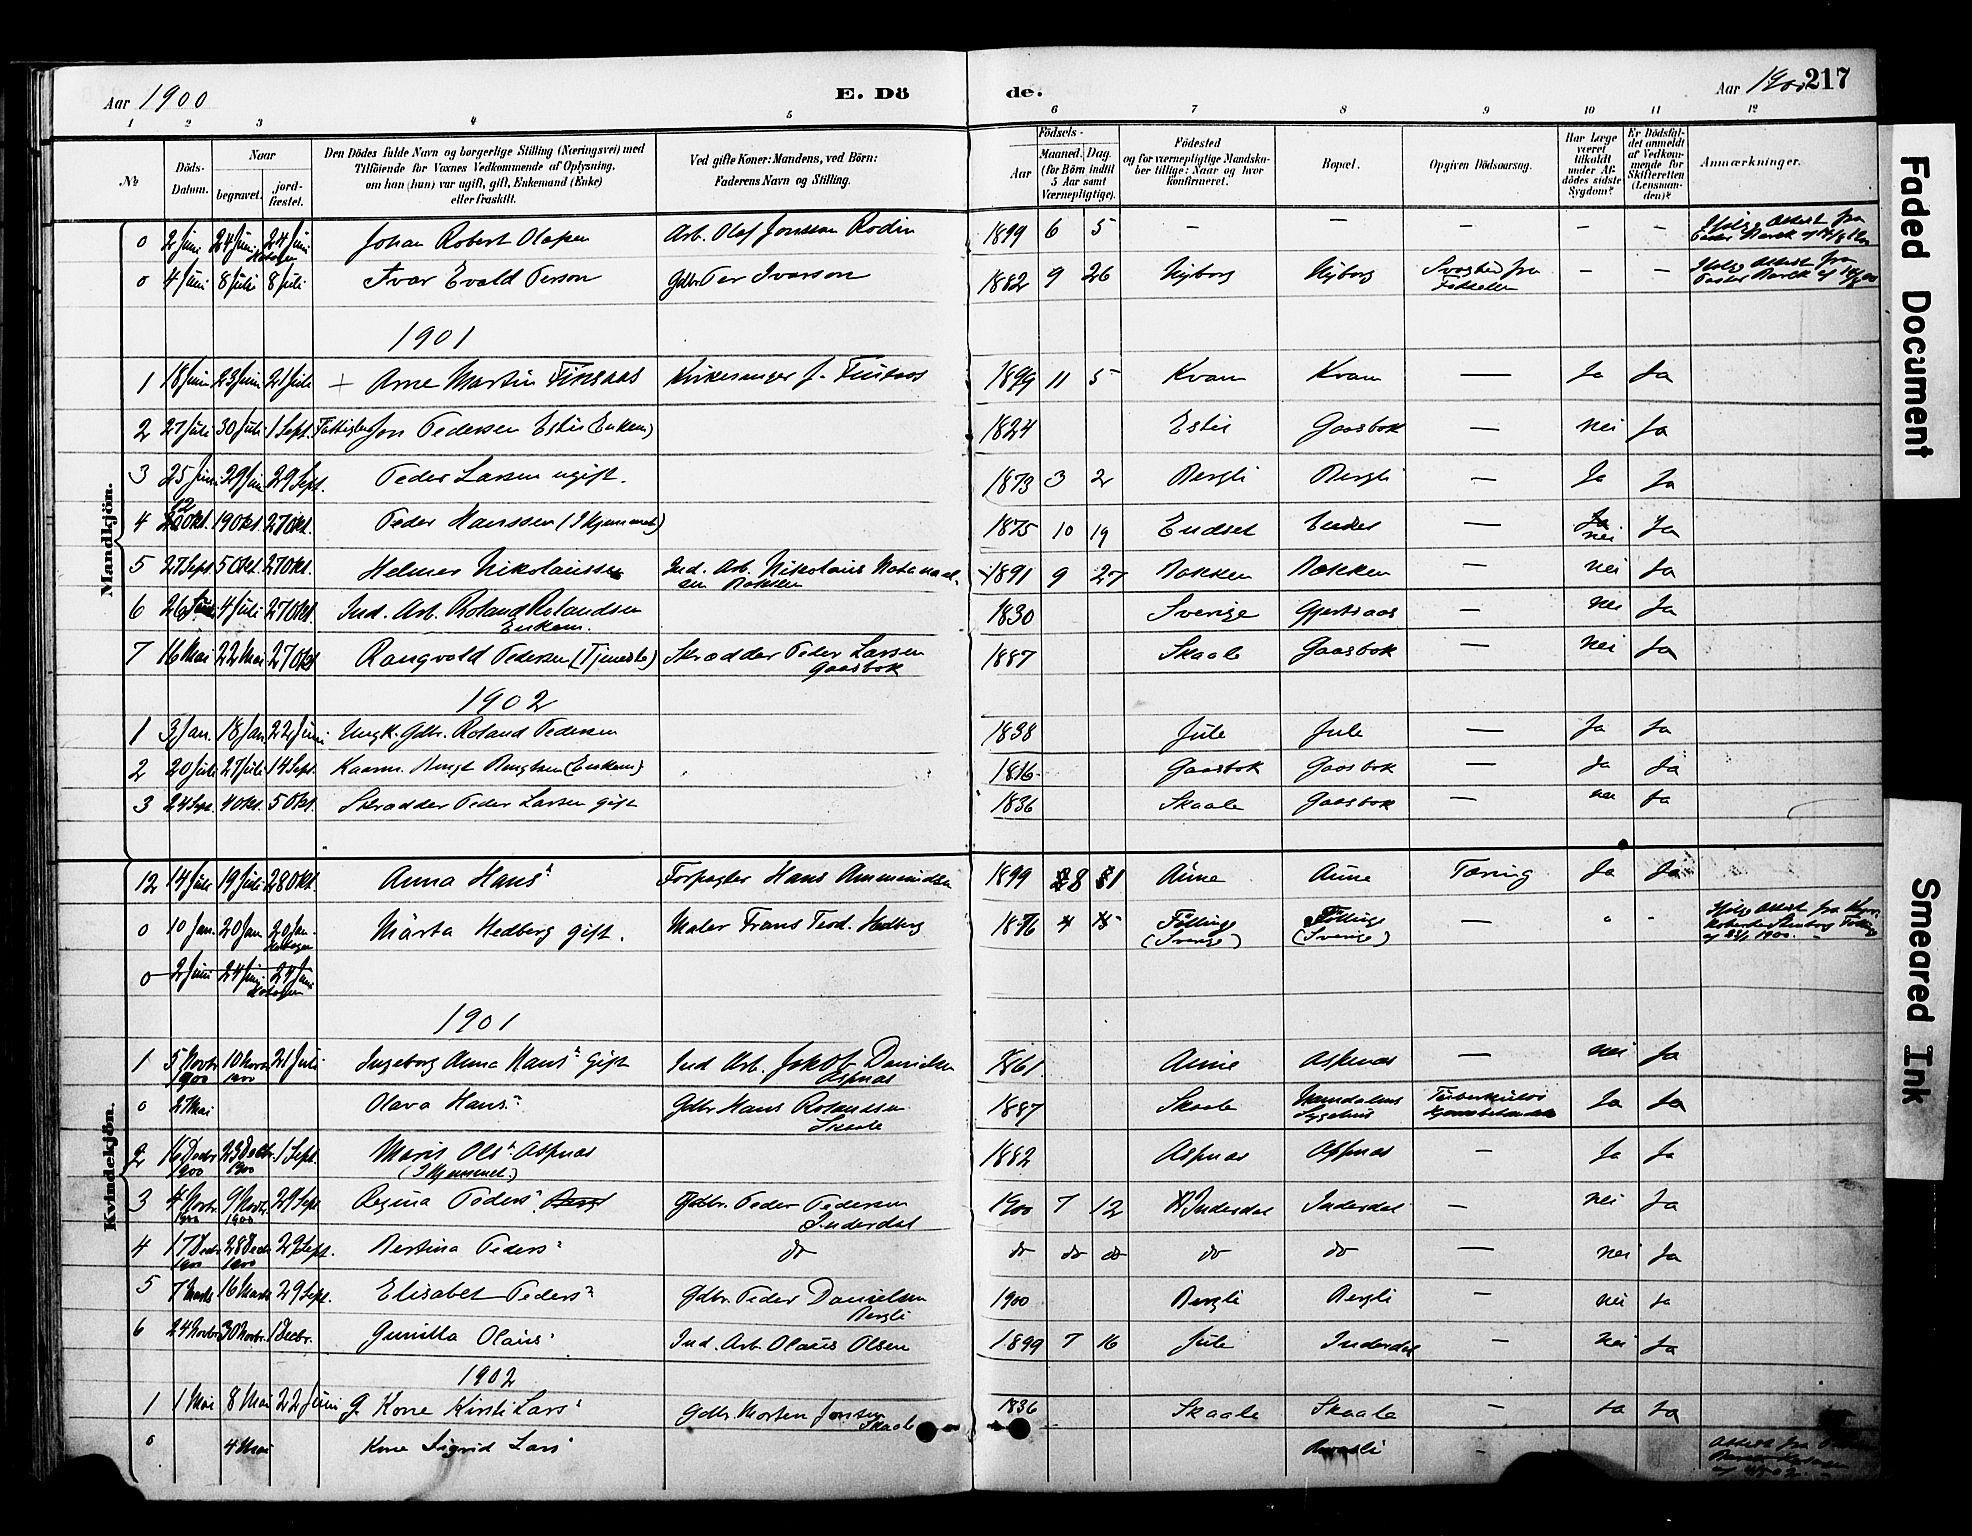 Aar 1900 E. Dö de. Aar 1900 217
1 2 3 4 5 6 7 8 9 10 11 12
№ Döds-Datum. Naar begravet. jord-fæstet. Den Dödes fulde Navn og borgerlige Stilling (Næringsvei) med Tilföiende for Voxnes Vedkommende af Oplysning, om han (hun) var ugift, gift, Enkemand (Enke) eller fraskilt. Ved gifte Koner: Mandens, ved Börn: Faderens Navn og Stilling. Födsels- Aar Maaned. Dag. (for Börn indtil 5 Aar samt Værnepligtige). Födested og for værnepligtige Mandska-ber tillige: Naar og hvor konfirmeret. Bopæl. Opgiven Dödsaarsag. Har Læge været tilkaldt under Af-dödes sidste Sygdom? Er Dödsfal-det anmeldt af Vedkom-mende for Skifteretten (Lensman-den)? Anmærkninger.
Mandkjön.
0 2 Juni 24 Juni 24 Juni Johan Robert Olofsen Arb. Olof Jonsson Rodin 1899 6 5 – – – – –
0 4 Juni 8 Juli 8 Juli Ivar Evald Person Gdbr. Per Ivarson 1882 9 26 Nyborg Nyborg Svaghed fra Fødselen – –
1901
1 18 Juni 23 Juni 21 Juli + Arne Martin Finsaas Kirkesanger J. Finsaas 1899 11 5 Kvam Kvam — Ja Ja
2 27 Juli 30 Juli 1 Sept. Fattiglem Jon Pedersen Estil (Enkem) 1824 Estil Gaasbok — nei Ja
3 25 Juni 29 Juni 29 Sept. Peder Larsen ugift. 1873 3 2 Bergli Bergli — Ja Ja
4 12 Okt. 19 Okt. 27 Okt. Peder Hanssen (I Hjemmet) 1875 10 19 Endset Endset — nei Ja
5 27 Sept. 5 Okt. 27 Okt. Helmer Nikolaussen Ind. Arb. Nikolaus Natanael-sen Bakken 1891 9 27 Bakken Bakken — nei Ja
6 26 Juni 4 Juli 27 Okt. Ind. Arb. Roland Rolandsen Enkem. 1830 Sverige Gjertsaas — nei Ja
7 16 Mai 22 Mai 27 Okt. Rangvald Pedersen (Tjeneste) Skrædder Peder Larsen Gaasbok 1887 Skaale Gaasbok — nei Ja
1902
1 3 Jan. 18 Jan. 22 Juni Ungk. Gdbr. Roland Pedersen 1838 Jule Jule — Ja Ja
2 20 Juli 27 Juli 14 Sept. Kaarm. Bengt Bengtsen (Enkem) 1816 Gaasbok Gaasbok — Ja Ja
3 24 Sept. 4 Okt. 5 Okt. Skrædder Peder Larsen gift 1836 Skaale Gaasbok — nei Ja
Kvindekjön.
12 14 Juli 19 Juli 28 Okt. Anna Hans' Forpagter Hans Ammundsen 1899 8 1 Aune Aune Tæring Ja Ja
0 10 Jan. 20 Jan. 20 Jan. Märta Hedberg gift. Maler Frans Teod. Hedberg 1876 Föllinge (Sverige) Föllinge (Sverige) —
0 2 Juni 24 Juni 24 Juni
1901
1 5 Novbr 1900 10 Novbr 1900 21 Juli Ingeborg Anna Hans' Gift Ind Arb. Jakob Danielsen Aspnas 1861 Aune Aspnas — nei Ja
0 27 Mai Olava Hans' Gdbr Hans Rolandsen Skaale 1887 Skaale Namdalens Sygehus Tuberkuløs Ja Ja
2 16 Decbr 1900 23 Decbr. 1900 1 Sept. Marie Ols' Aspnas (I Hjemmet.) 1882 Aspnas Aspnas — Ja Ja
3 4 Novbr 1900 9 Novbr. 1900 29 Sept Regina Peders' Gdbr. Peder Pedersen Inderdal 1900 7 12 Inderdal Inderdal — nei Ja
4 17 Decbr 1900 28 Decbr 1900 29 Sept. Bertina Peders' do do do do do do — nei Ja
5 7 Marts 16 Marts 29 Sept. Elisabet Peders' Gdbr. Peder Danielsen Bergli 1900 Bergli Bergli — nei Ja
6 24 Novbr 30 Novbr. 1 Decbr. Gunilla Olaus' Ind. Arb. Olaus Olsen 1899 7 16 Jule Inderdal — nei Ja
1902
1 1 Mai 8 Mai 22 Juni G. Kone Kirsti Lars' Gdbr. Morten Jonsen Skaale 1836 Skaale Skaale — Ja Ja
0 4 Mai Kone Sigrid Lars' —
Faded Document
Smeared Ink